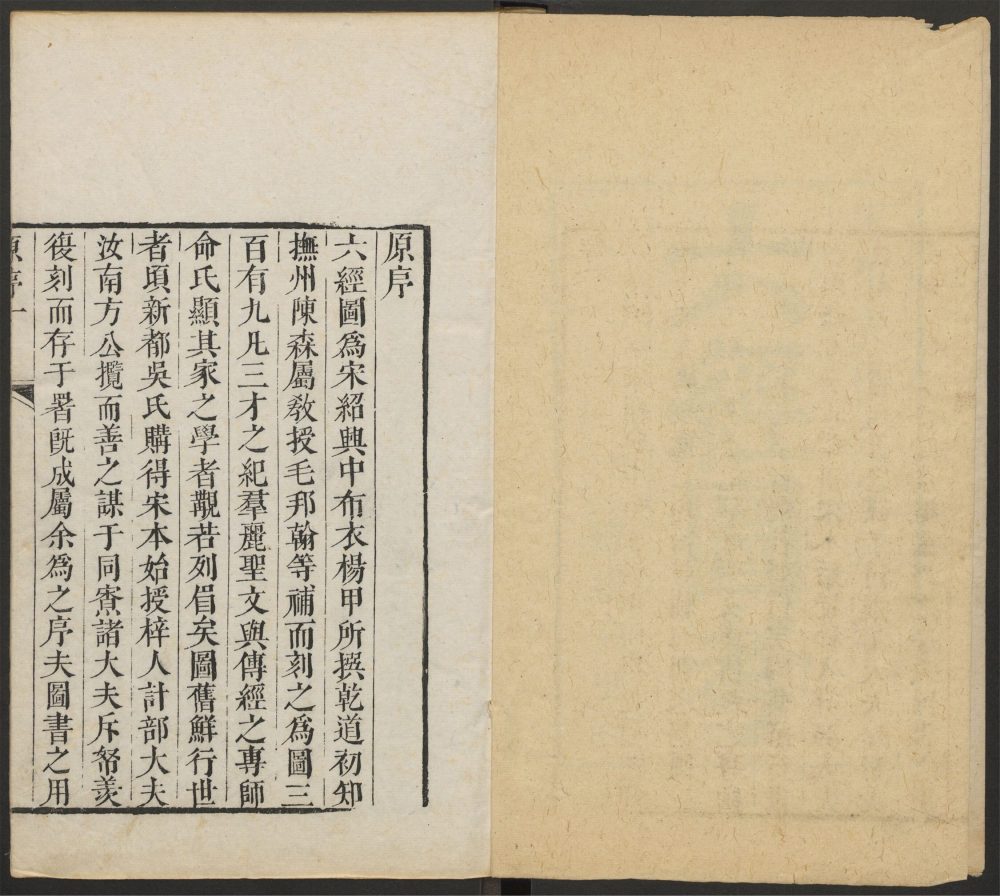 原序
六經圖爲宋紹興中布衣楊甲所撰乾道初知
撫州陳森屬教授毛邦翰等補而刻之爲圖三
百有九凡三才之紀羣麗聖文與傳經之專師
命氏顯其家之學者覩若列眉矣圖舊鮮行世
者頃新都吳氏購得宋本始授梓人計部大夫
汝南方公攬而善之謀于同寮諸大夫斥帑羨
復刻而存于署既成屬余爲之序夫圖書之用
原序一